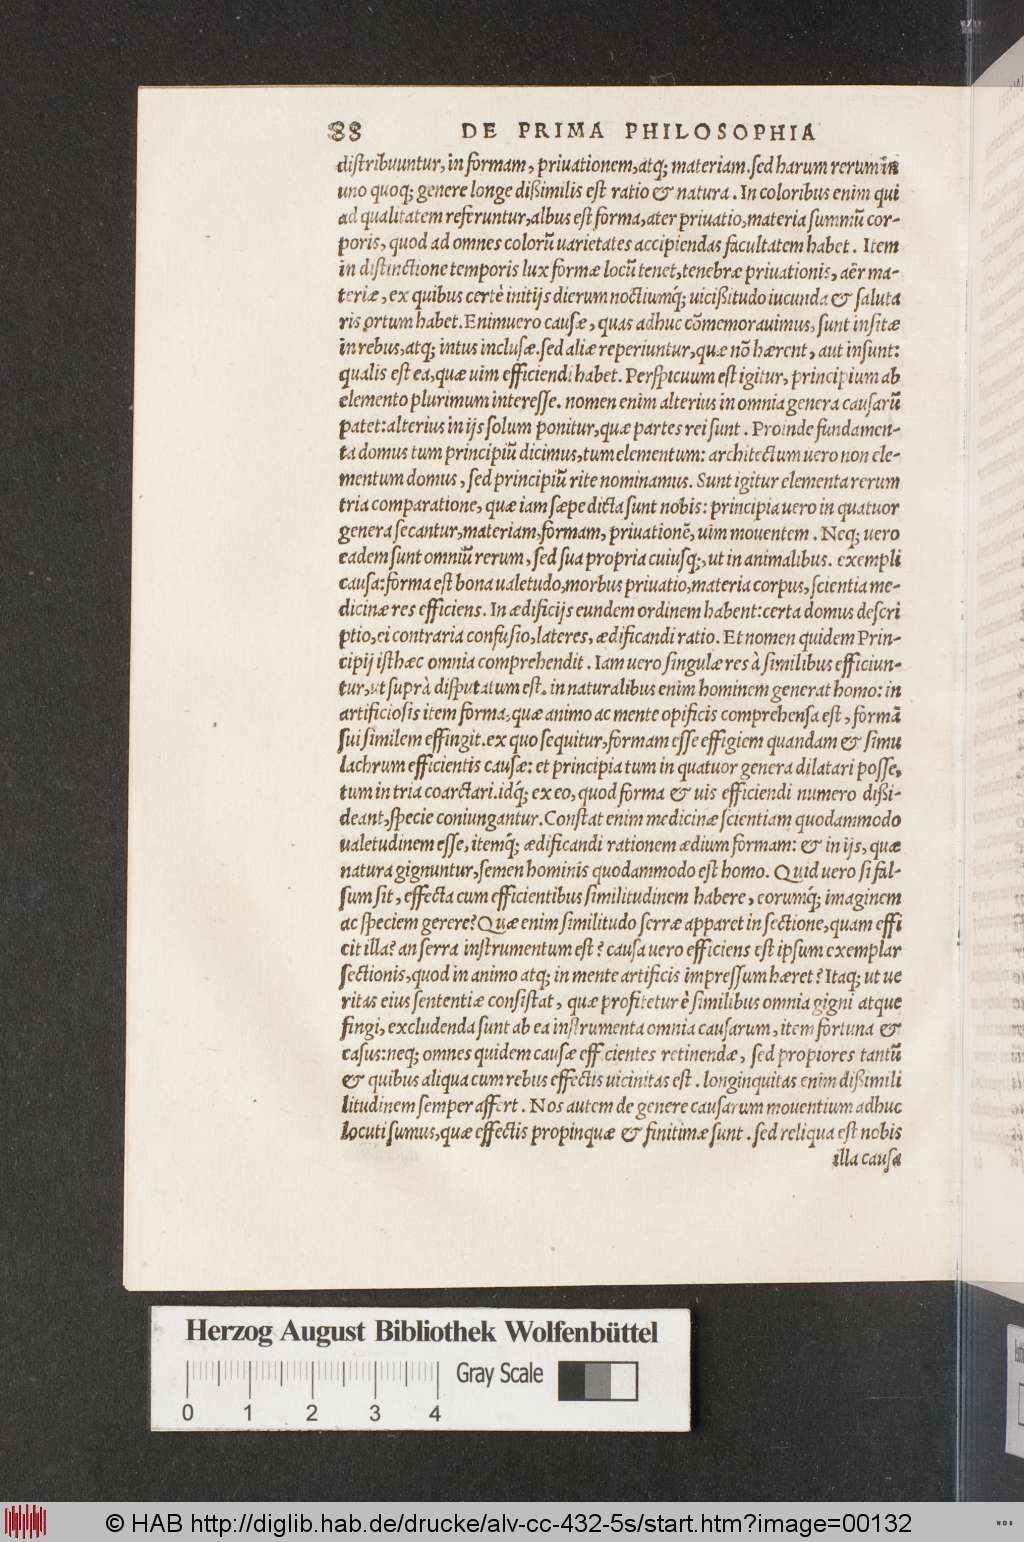 88 DE PRIMA PHILOSOPHIA
distribuuntur, in formam, priuationem, atq; materiam. sed harum rerum in
uno quoq; genere longe dißimilis est ratio & natura. In coloribus enim qui
ad qualitatem referuntur, albus est forma, ater priuatio, materia summũ cor-
poris, quod ad omnes colorũ uarietates accipiendas facultatem habet. Item
in distinctione temporis lux formæ locũ tenet, tenebræ priuationis, aër ma-
teriæ, ex quibus certè initijs dierum noctiumq́; uicißitudo iucunda & saluta
ris ortum habet. Enimuero causæ, quas adhuc cõmemorauimus, sunt insitæ
in rebus, atq; intus inclusæ. sed aliæ reperiuntur, quæ nõ hærent, aut insunt:
qualis est ea, quæ uim efficiendi habet. Perspicuum est igitur, principium ab
elemento plurimum interesse. nomen enim alterius in omnia genera causarũ
patet: alterius in ijs solum ponitur, quæ partes rei sunt. Proinde fundamen-
ta domus tum principiũ dicimus, tum elementum: architectum uero non ele-
mentum domus, sed principiũ rite nominamus. Sunt igitur elementa rerum
tria comparatione, quæ iam sæpe dicta sunt nobis: principia uero in quatuor
genera secantur, materiam, formam, priuationẽ, uim mouentem. Neq; uero
eadem sunt omniũ rerum, sed sua propria cuiusq;, ut in animalibus. exempli
causa: forma est bona ualetudo, morbus priuatio, materia corpus, scientia me-
dicinæ res efficiens. In ædificijs eundem ordinem habent: certa domus descri
ptio, ei contraria confusio, lateres, ædificandi ratio. Et nomen quidem Prin-
cipij isthæc omnia comprehendit. Iam uero singulæ res à similibus efficiun-
tur, ut suprà disputatum est. in naturalibus enim hominem generat homo: in
artificiosis item forma, quæ animo ac mente opificis comprehensa est, formã
sui similem effingit. ex quo sequitur, formam esse effigiem quandam & simu
lachrum efficientis causæ: et principia tum in quatuor genera dilatari posse,
tum in tria coarctari. idq́; ex eo, quod forma & uis efficiendi numero dißi-
deant, specie coniungantur. Constat enim medicinæ scientiam quodammodo
ualetudinem esse, itemq́; ædificandi rationem ædium formam: & in ijs, quæ
natura gignuntur, semen hominis quodammodo est homo. Quid uero si fal-
sum sit, effecta cum efficientibus similitudinem habere, eorumq́; imaginem
ac speciem gerere? Quæ enim similitudo serræ apparet in sectione, quam effi
cit illa? an serra instrumentum est? causa uero efficiens est ipsum exemplar
sectionis, quod in animo atq; in mente artificis impressum hæret? Itaq; ut ue
ritas eius sententiæ consistat, quæ profitetur è similibus omnia gigni atque
fingi, excludenda sunt ab ea instrumenta omnia causarum, item fortuna &
casus: neq; omnes quidem causæ efficientes retinendæ, sed propiores tantũ
& quibus aliqua cum rebus effectis uicinitas est. longinquitas enim dißimili
litudinem semper affert. Nos autem de genere causarum mouentium adhuc
locuti sumus, quæ effectis propinquæ & finitimæ sunt. sed reliqua est nobis
illa causa
Herzog August Bibliothek Wolfenbüttel
Gray Scale
0 1 2 3 4
© HAB http://diglib.hab.de/drucke/alv-cc-432-5s/start.htm?image=00132